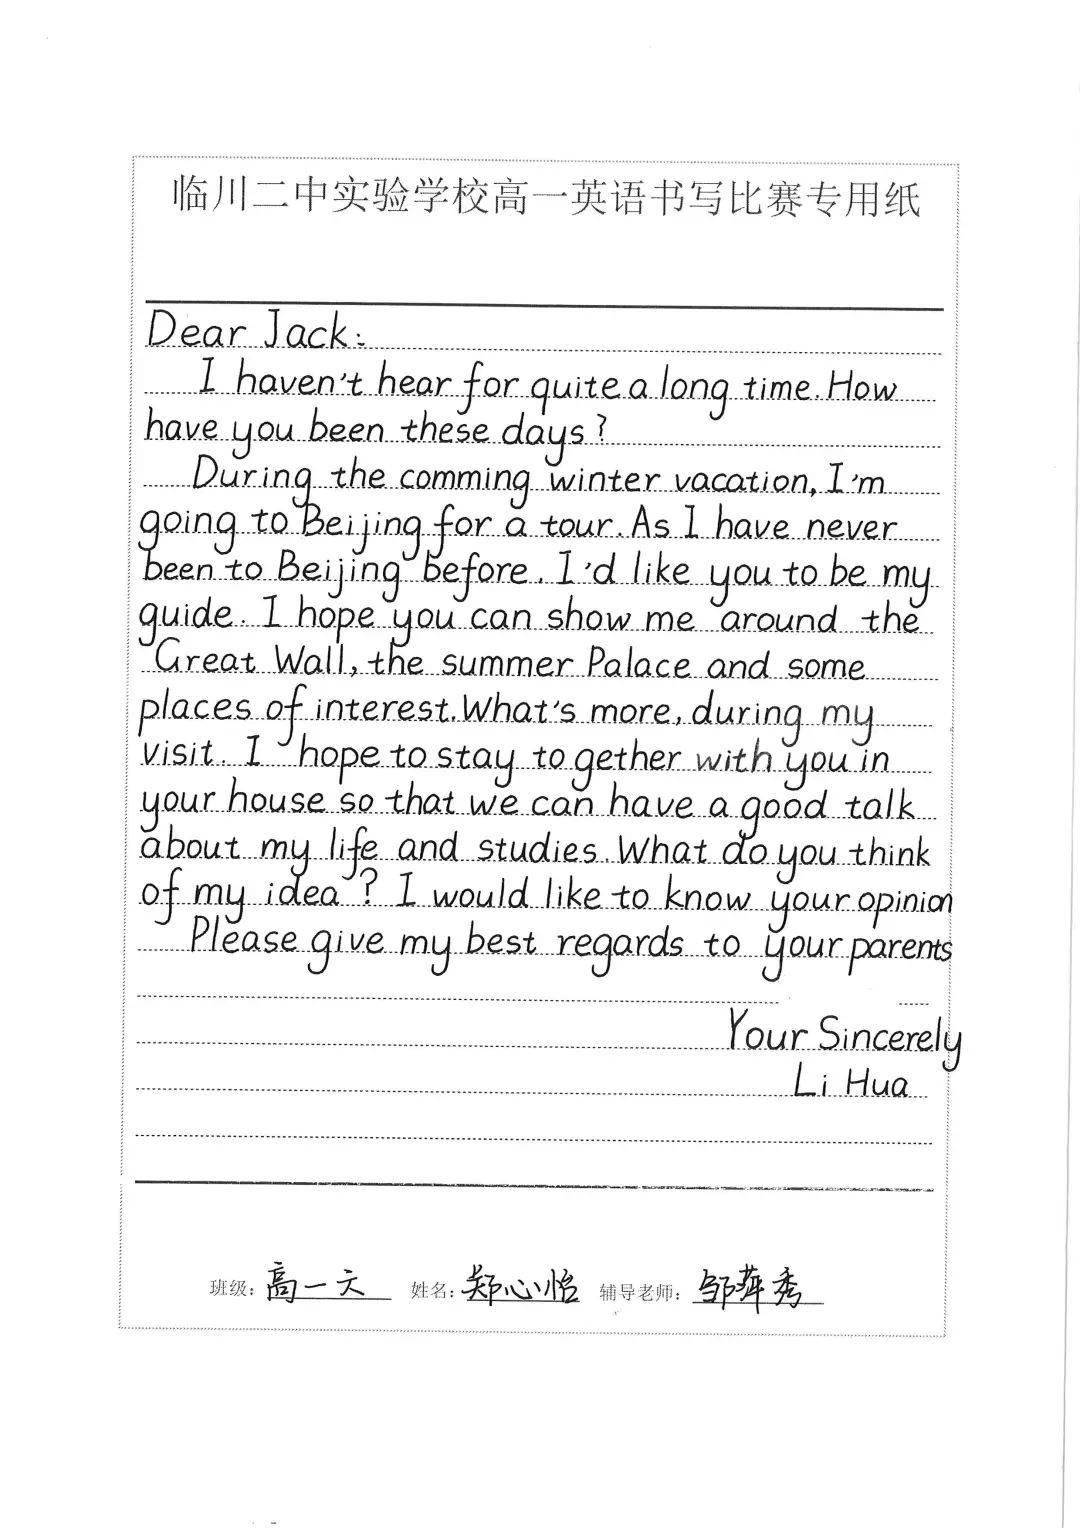 临川二中实验学校高一英语书写比赛专用纸
Dear Jack:
I haven't hear for quite a long time. How
have you been these days?
During the comming winter vacation, I'm
going to Beijing for a tour. As I have never
been to Beijing before. I'd like you to be my
guide. I hope you can show me around the
Great Wall, the summer Palace and some
places of interest. What's more, during my
visit. I hope to stay to gether with you in
your house so that we can have a good talk
about my life and studies. What do you think
of my idea? I would like to know your opinion
Please give my best regards to your parents
Your Sincerely
Li Hua
班级: 高一六 姓名: 郑心怡 辅导老师: 邹萍秀